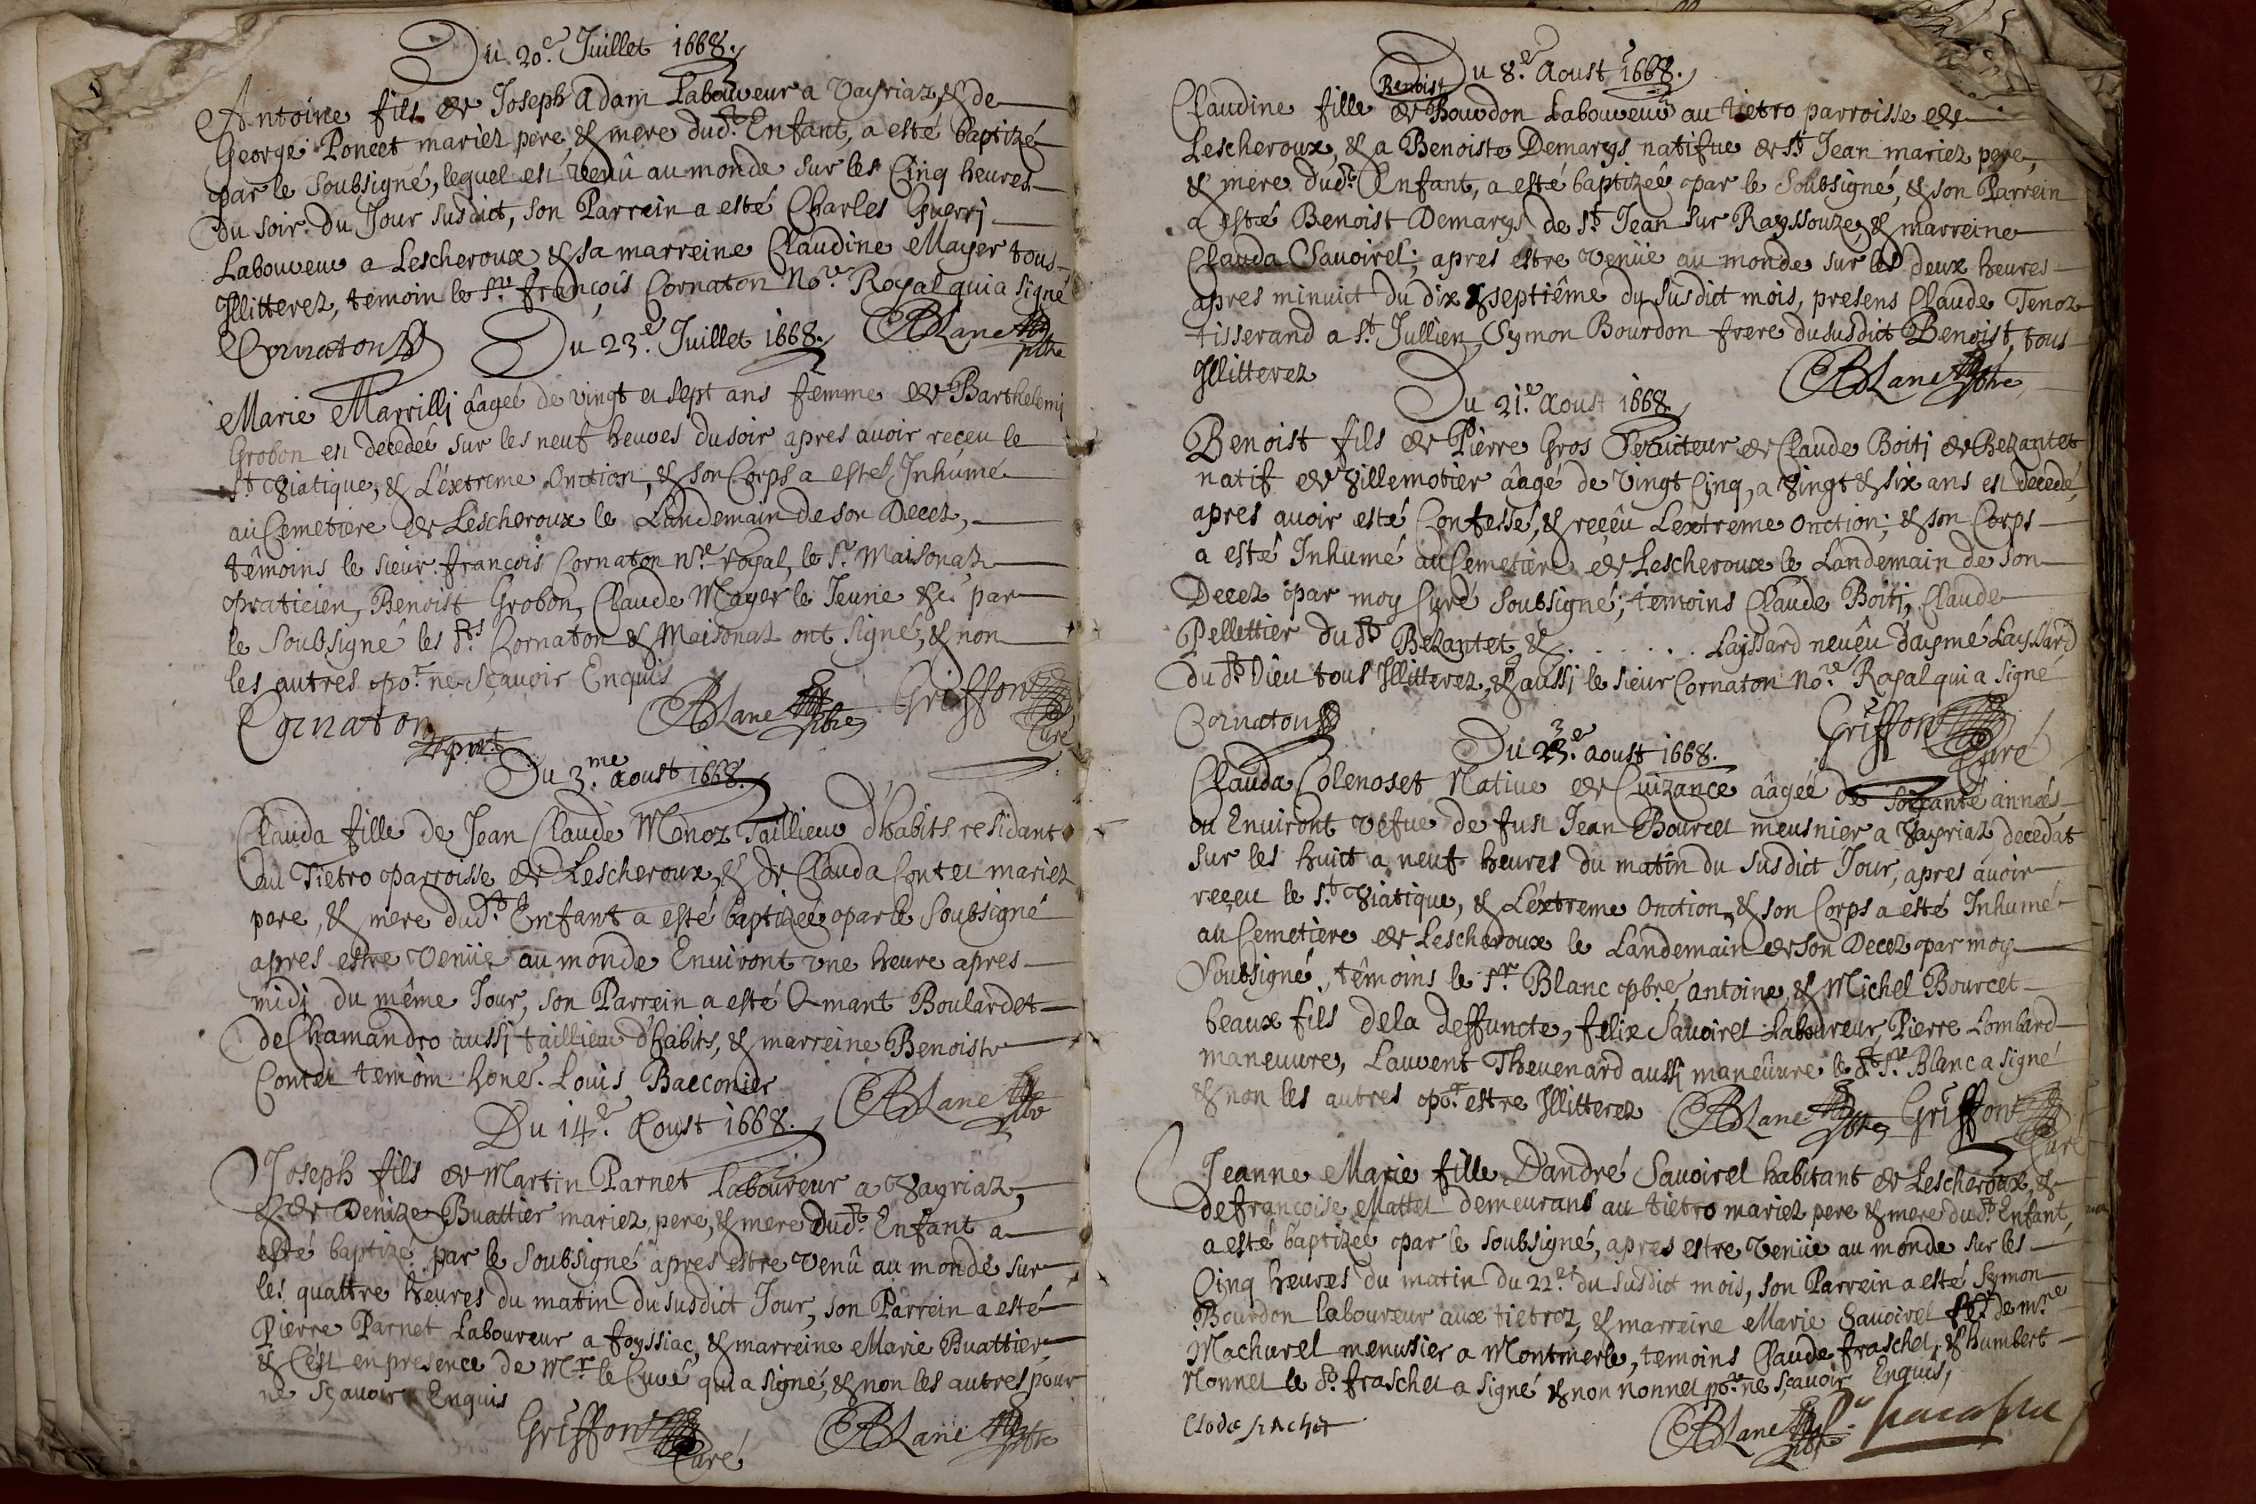 Du 20.e Juillet 1668.
Antoine fils de Joseph Adam Laboureur a Vayriaz, & de
George Poncet mariez pere, & mere dud.t Enfant, a esté baptizé
par le soubsigné, lequel est venû au monde sur les Cinq heures
du soir du Jour susdict, son Parrein a esté Charles Guerrj
Laboureur a Lescheroux & sa marreine Claudine Mayer tous
Jllitterez, temoin le S.r françois Cornaton No.re Royal qui a signé
Cornaton
BLanc pbre
Du 23.e Juillet 1668.
Marie Marrillj âagée de vingt et sept ans femme de Barthelemj
Grobon est decedée sur les neuf heures du soir apres auoir receu le
s.t Viatique, & L'éxtreme Onction, & son Corps a esté Jnhumé
au Cemetiere de Lescheroux le Landemain de son Decez,
têmoins le sieur françois Cornaton N.re royal, le S.r Maisonaz
praticien, Benoist Grobon, Claude Mayer le Jeune &c par
le Soubsigné les s.rs Cornaton & Maisonaz ont signé, & non
les autres po.r ne sçauoir Enquis
Cornaton
BLanc pbre
Griffon Curé
Du 3.me Aoust 1668.
Clauda fille de Jean Claude Monoz Taillieur d'habits residant
au Tietro parroisse de Lescheroux, & de Clauda Contet mariez
pere, & mere dud.t Enfant a esté baptizée par le Soubsigné
apres estre venüe au monde Enuiront vne heure apres
midj du même Jour, son Parrein a esté Amant Boulardet
de Chamandro aussj taillieur d'habits, & marreine Benoiste
Contet temoin hone. Louis Bacconier
BLanc pbre
Du 14.e Aoust 1668.
Joseph fils de Martin Parnet Laboureur a Vayriaz,
& de Denize Buattier mariez pere, & mere dud.t Enfant a
esté baptizé par le Soubsigné apres estre venû au monde sur
les quattre heures du matin du susdict Jour, son Parrein a esté
Pierre Parnet Laboureur a foyssiac, & marreine Marie Buattier
& C'est en presence de M.r le Curé qui a signé, & non les autres pour
ne sçauoir Enquis
Griffon Curé
BLanc pbre
Du 8.e Aoust 1668.
Benoist
Claudine fille de Bourdon Laboureur au tietro parroisse de
Lescheroux, & a Benoiste Demarys natifue de s.t Jean mariez pere,
& mere dud.t Enfant, a esté baptizée par le Soubsigné, & son Parrein
a esté Benoist Demarys de s.t Jean sur Rayssouze, & marreine
Clauda Sauoirel; apres estre venüe au monde sur les deux heures
apres minuict du dix & septiême du susdict mois, presens Claude Tenoz
tisserand a s.t Jullien, Symon Bourdon frere du susdict Benoist, tous
Jllitterez
BLanc pbre
Du 21.e Aoust 1668
Benoist fils de Pierre Gros Seruiteur de Claude Boitj de Bezantet
natif de Villemotier âagé de Vingt Cinq, a Vingt & six ans est decedé,
apres auoir esté Confessé, & reçêu L'éxtreme Onction; & son Corps
a esté Jnhumé au Cemetiere de Lescheroux le Landemain de son
Decez par moy Curé soubsigné; temoins Claude Boitj, Claude
Pellettier du d.t Bezantet, & . . . . . . Layssard neuêu d'aymé Layssard
du d.t Lieu tous Jllitterez, & aussj le sieur Cornaton No.re Royal qui a signé
Cornaton
Griffon Curé
Du 23.e Aoust 1668.
Clauda Colenoset Natiue de Cuizance âagée de soixante années
ou Enuiront véfue de fust Jean Bourcet meusnier a Vayriaz decedat
sur les huict a neuf heures du matin du susdict Jour, apres auoir
reçeu le s.t Viatique, & L'éxtreme Onction, & son Corps a esté Jnhumé
au Cemetière de Lescheroux le Landemain de son Decez par moy
Soubsigné, têmoins le S.r Blanc pbre, Antoine, & Michel Bourcet
beaux fils de la deffuncte, felix Sauoirel Laboureur, Pierre Lombard
maneuure, Laurent Theuenard aussj maneûure le d.t S.r Blanc a signé
& non les autres po.r estre Jllitterez
BLanc pbre
Griffon Curé
Jeanne Marie fille D'andré Sauoirel habitant de Lescheroux, &
de françoise Mattet demeurans au tiêtro mariez pere & mere dud.t Enfant,
a esté baptizée par le Soubsigné, apres estre Venüe au monde sur les
Cinq heures du matin du 22.e du susdict mois, son Parrein a esté Symon
Bourdon Laboureur aux tietroz, & marreine Marie Sauoirel de m.re
Machurel menusier a Montmerle, temoins Claude fraschet, & humbert
Nonnet le d.t fraschet a signé & non Nonnet po.r ne sçauoir Enquis,
BLanc pbre